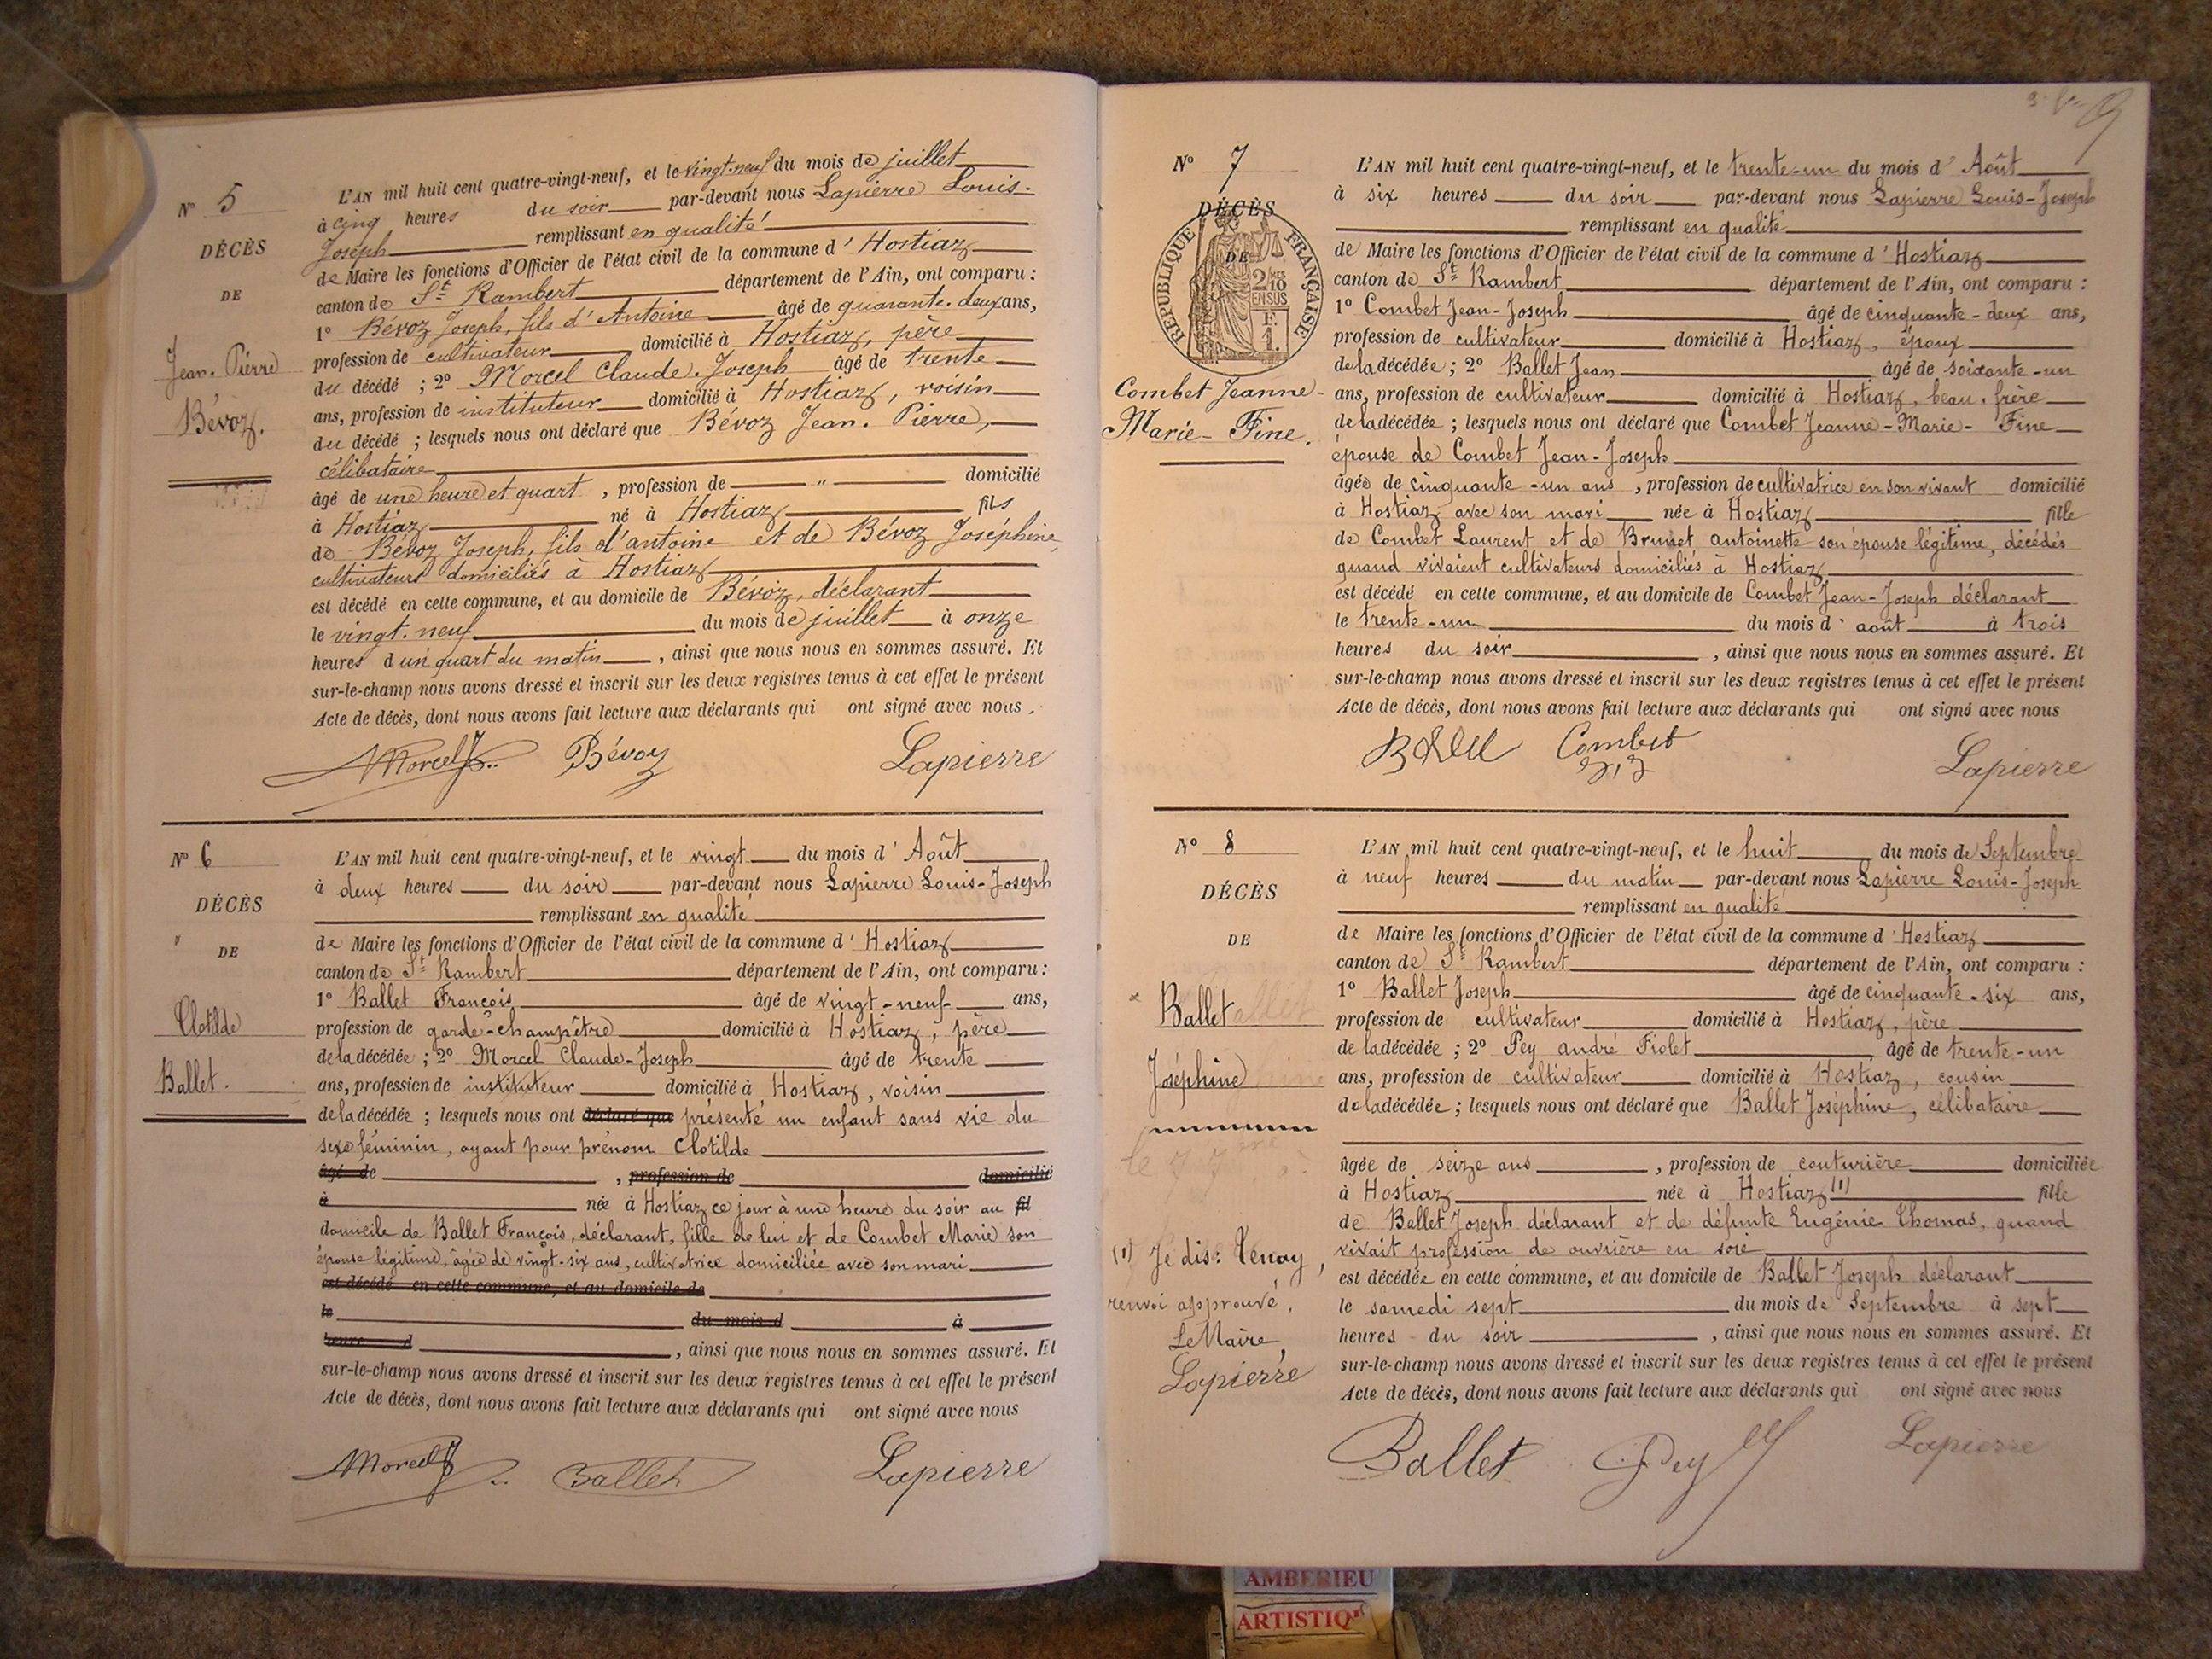 N° 5
DÉCÈS
DE
Jean-Pierre
Bévoz.
L'AN mil huit cent quatre-vingt-neuf, et le vingt-neuf du mois de juillet
à cinq heures du soir par-devant nous Lapierre Louis-
Joseph remplissant en qualité
de Maire les fonctions d'Officier de l'état civil de la commune d'Hostiaz
canton de St Rambert département de l'Ain, ont comparu :
1° Bévoz Joseph, fils d'Antoine âgé de quarante-deux ans,
profession de cultivateur domicilié à Hostiaz, père
du décédé ; 2° Morcel Claude-Joseph âgé de trente
ans, profession de instituteur domicilié à Hostiaz, voisin
du décédé ; lesquels nous ont déclaré que Bévoz Jean-Pierre,
célibataire
âgé de une heure et quart, profession de " domicilié
à Hostiaz né à Hostiaz fils
de Bévoz Joseph, fils d'antoine et de Bévoz Joséphine,
cultivateurs domiciliés à Hostiaz
est décédé en cette commune, et au domicile de Bévoz, déclarant
le vingt-neuf du mois de juillet à onze
heures d'un quart du matin, ainsi que nous nous en sommes assuré. Et
sur-le-champ nous avons dressé et inscrit sur les deux registres tenus à cet effet le présent
Acte de décès, dont nous avons fait lecture aux déclarants qui ont signé avec nous.
Morcel J. Bévoz Lapierre
N° 6
DÉCÈS
DE
Clotilde
Ballet.
L'AN mil huit cent quatre-vingt-neuf, et le vingt du mois d'Août
à deux heures du soir par-devant nous Lapierre Louis-Joseph
remplissant en qualité
de Maire les fonctions d'Officier de l'état civil de la commune d'Hostiaz
canton de St Rambert département de l'Ain, ont comparu :
1° Ballet François âgé de vingt-neuf ans,
profession de garde-champêtre domicilié à Hostiaz, père
de la décédée ; 2° Morcel Claude-Joseph âgé de trente
ans, profession de instituteur domicilié à Hostiaz, voisin
de la décédée ; lesquels nous ont déclaré que présenté un enfant sans vie du
sexe féminin, ayant pour prénom Clotilde
âgé de , profession de domicilié
à née à Hostiaz ce jour à une heure du soir au fil
domicile de Ballet François, déclarant, fille de lui et de Combet Marie son
épouse légitime, âgée de vingt-six ans, cultivatrice domiciliée avec son mari
est décédé en cette commune, et au domicile de
le du mois d à
heure d , ainsi que nous nous en sommes assuré. Et
sur-le-champ nous avons dressé et inscrit sur les deux registres tenus à cet effet le présent
Acte de décès, dont nous avons fait lecture aux déclarants qui ont signé avec nous
Morcel J. Ballet Lapierre
9
N° 7
DÉCÈS
DE
RÉPUBLIQUE FRANÇAISE
2 MES
10
EN SUS
F.
1.
Combet Jeanne-
Marie-Fine.
L'AN mil huit cent quatre-vingt-neuf, et le trente-un du mois d'Août
à six heures du soir par-devant nous Lapierre Louis-Joseph
remplissant en qualité
de Maire les fonctions d'Officier de l'état civil de la commune d'Hostiaz
canton de St Rambert département de l'Ain, ont comparu :
1° Combet Jean-Joseph âgé de cinquante-deux ans,
profession de cultivateur domicilié à Hostiaz, époux
de la décédée ; 2° Ballet Jean âgé de soixante-un
ans, profession de cultivateur domicilié à Hostiaz, beau-frère
de la décédée ; lesquels nous ont déclaré que Combet Jeanne-Marie-Fine
épouse de Combet Jean-Joseph
âgée de cinquante-un ans, profession de cultivatrice en son vivant domicilié
à Hostiaz avec son mari née à Hostiaz fille
de Combet Laurent et de Brunet antoinette son épouse légitime, décédés
quand vivaient cultivateurs domiciliés à Hostiaz
est décédé en cette commune, et au domicile de Combet Jean-Joseph déclarant
le trente-un du mois d'août à trois
heures du soir, ainsi que nous nous en sommes assuré. Et
sur-le-champ nous avons dressé et inscrit sur les deux registres tenus à cet effet le présent
Acte de décès, dont nous avons fait lecture aux déclarants qui ont signé avec nous
Combet Lapierre
N° 8
DÉCÈS
DE
Ballet
Joséphine
(1) Je dis: Tenay,
renvoi approuvé.
Le Maire,
Lapierre
L'AN mil huit cent quatre-vingt-neuf, et le huit du mois de Septembre
à neuf heures du matin par-devant nous Lapierre Louis-Joseph
remplissant en qualité
de Maire les fonctions d'Officier de l'état civil de la commune d'Hostiaz
canton de St Rambert département de l'Ain, ont comparu :
1° Ballet Joseph âgé de cinquante-six ans,
profession de cultivateur domicilié à Hostiaz, père
de la décédée ; 2° Pey andré Fiolet âgé de trente-un
ans, profession de cultivateur domicilié à Hostiaz, cousin
de la décédée ; lesquels nous ont déclaré que Ballet Joséphine, célibataire
âgée de seize ans, profession de couturière domiciliée
à Hostiaz née à Hostiaz (1) fille
de Ballet Joseph déclarant et de défunte Eugénie Thomas, quand
vivait profession de ouvrière en soie
est décédée en cette commune, et au domicile de Ballet Joseph déclarant
le samedi sept du mois de Septembre à sept
heures du soir, ainsi que nous nous en sommes assuré. Et
sur-le-champ nous avons dressé et inscrit sur les deux registres tenus à cet effet le présent
Acte de décès, dont nous avons fait lecture aux déclarants qui ont signé avec nous
Ballet Pey Lapierre
AMBERIEU
ARTISTIQ